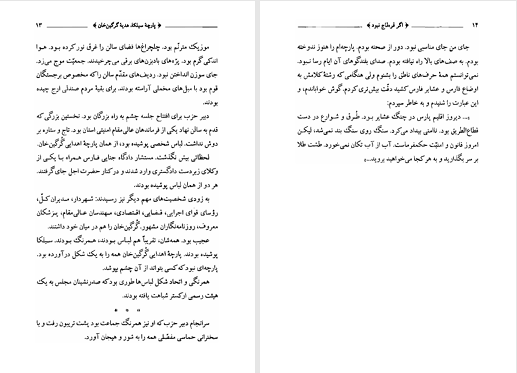 ۱۳ ❮ پارچهٔ سیلکا، هدیهٔ گرگین‌خان ❯
موزیک مترنّم بود. چلچراغ‌ها فضای سالن را غرق نور کرده بود. هوا
اندکی گرم بود. پرّه‌های بادبزن‌های برقی می‌چرخیدند. جمعیّت موج می‌زد.
جای سوزن انداختن نبود. ردیف‌های مقدّم سالن را که مخصوص برجستگان
قوم بود با مبل‌های مخملی آراسته بودند. برای بقیهٔ مردم صندلی ارج چیده
بودند.
دبیر حزب برای افتتاح جلسه چشم به راه بزرگان بود. نخستین بزرگی که
قدم به سالن نهاد یکی از فرماندهان عالی‌مقام امنیتی استان بود. تاج و ستاره بر
دوش نداشت. لباس شخصی پوشیده بود، از همان پارچهٔ اهدایی گرگین‌خان.
لحظاتی بیش نگذشت. مستشار دادگاه جنایی فارس همراه با یکی از
وکلای زبردست دادگستری وارد شدند و در کنار حضرت اجل جای گرفتند.
هر دو از همان لباس پوشیده بودند.
به زودی شخصیت‌های مهم دیگر نیز رسیدند: شهردار، مدیران کل،
رؤسای قوای اجرایی، قضایی، اقتصادی، مهندسان عالی‌مقام، پزشکان
معروف، روزنامه‌نگاران مشهور. گرگین‌خان را هم در میان خود داشتند.
عجیب بود. همه‌شان، تقریباً هم لباس بودند، همرنگ بودند. سیلکا
پوشیده بودند. پارچهٔ اهدایی گرگین‌خان همه را به یک شکل درآورده بود.
پارچه‌ای نبود که کسی بتواند از آن چشم بپوشد.
همرنگی و اتحاد شکل لباس‌ها طوری بود که صدرنشینان مجلس به یک
هیئت رسمی ارکستر شباهت یافته بودند.
* * *
سرانجام دبیر حزب که او نیز همرنگ جماعت بود پشت تریبون رفت و با
سخنرانی حماسی مفصّلی همه را به شور و هیجان آورد.
۱۴ ❮ اگر قره‌قاج نبود ❯
جای من جای مناسبی نبود. دور از صحنه بودم. پارچه‌ام را هنوز ندوخته
بودم. به صف‌های بالا راه نیافته بودم. صدای بلندگوهای آن ایام رسا نبود.
نمی‌توانستم همهٔ حرف‌های ناطق را بشنوم ولی هنگامی که رشتهٔ کلامش به
اوضاع فارس و عشایر فارس کشید دقّت بیش‌تری کردم. گوش خواباندم، و
این عبارت را شنیدم و به خاطر سپردم:
«... دیروز اقلیم پارس در چنگ عشایر بود. طُرق و شوارع در دست
قطاع‌الطریق بود. ناامنی بیداد می‌کرد. سنگ روی سنگ بند نمی‌شد، لیکن
امروز قانون و امنیّت حکمفرماست. آب از آب تکان نمی‌خورد. طشت طلا
بر سر بگذارید و به هر کجا می‌خواهید بروید...»